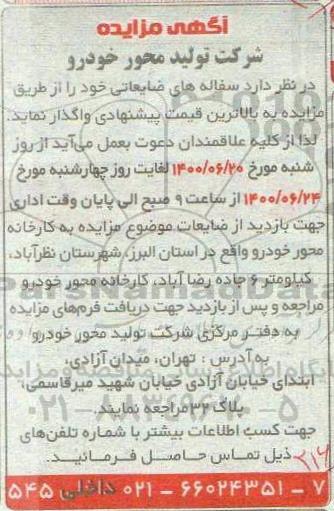 آگهی مزایده
شرکت تولید محور خودرو
در نظر دارد سفاله های ضایعاتی خود را از طریق
مزایده به بالاترین قیمت پیشنهادی واگذار نماید.
لذا از کلیه علاقمندان دعوت بعمل می‌آید از روز
شنبه مورخ ۱۴۰۰/۰۶/۲۰ لغایت روز چهارشنبه مورخ
۱۴۰۰/۰۶/۲۴ از ساعت ۹ صبح الی پایان وقت اداری
جهت بازدید از ضایعات موضوع مزایده به کارخانه
محور خودرو واقع در استان البرز، شهرستان نظرآباد،
کیلومتر ۶ جاده رضا آباد، کارخانه محور خودرو
مراجعه و پس از بازدید جهت دریافت فرم‌های مزایده
به دفتر مرکزی شرکت تولید محور خودرو
به آدرس : تهران، میدان آزادی،
ابتدای خیابان آزادی خیابان شهید میرقاسمی،
پلاک ۳۲ مراجعه نمایند.
جهت کسب اطلاعات بیشتر با شماره تلفن‌های
ذیل تماس حاصل فرمائید.
۷ – ۶۶۰۲۴۳۵۱ – ۰۲۱ داخلی ۵۴۵